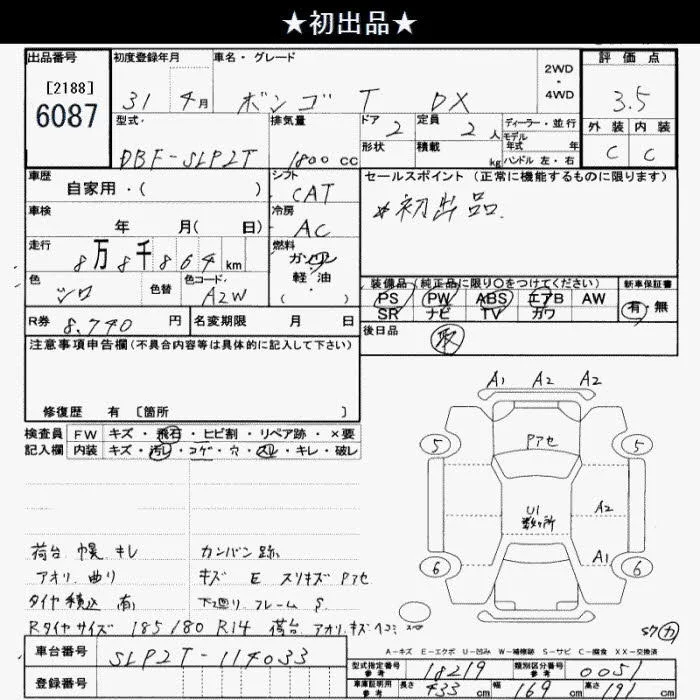 ★初出品★
出品番号 初度登録年月 車名・グレード 2WD・4WD 評価点
[2188]
6087
31 4月 ボンゴ T DX 3.5
型式 排気量 ドア 2 定員 2 人 ディーラー・並行 外装 内装
モデル年式 年
DBF-SLP2T 1800 CC 形状 積載 kg ハンドル 左・右 C C
車歴 シフト セールスポイント(正常に機能するものに限ります)
自家用・( ) CAT
*初出品.
車検 冷房
年 月( 日) AC
走行 燃料
8万8千864km ガソリン
軽・油
( )
色 色替 色コード 装備品(純正品に限り○をつけてください) 新車保証書
シロ A2W PS PW ABS エアB AW 有・無
SR ナビ TV カワ
R券 8,740 円 名変期限 月 日 後日品 取
注意事項申告欄(不具合内容等は具体的に記入して下さい)
修復歴 有 [箇所 ]
検査員 FW キズ・飛石・ヒビ割・リペア跡・×要
記入欄 内装 キズ・汚レ・コゲ・穴・スレ・キレ・破レ
A1 A2 A2
5 Pアセ 5
U1 数ヶ所 A2
A1
6 6
荷台 幌 キレ カンバン跡
アオリ 曲り キズ E スリキズ Pアセ
タイヤ積込 有 下廻り フレーム S
Rタイヤサイズ 185/80 R14 荷台 アオリ キズ ヘコミ
S7 カ
A-キズ E-エクボ U-凹み W-補修跡 S-サビ C-腐食 XX-交換済
車台番号 SLP2T-114033
型式指定番号 参考 18219 類別区分番号 参考 0051
登録番号
車庫証明用 参考 長さ 433 cm 幅 169 cm 高さ 191 cm